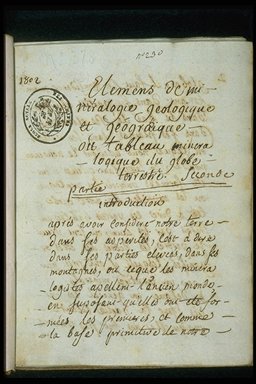 n° 230
1802
Elemens de mi
neralogie geologique
et geographique
ou tableau minera
-logique du globe
terrestre. Seconde
partie
introduction
après avoir considéré notre terre
dans ses asperités, c'est à dire
dans les parties elevées, dans les
montagnes, ou ce que les minera
logistes apellent l'ancien monde
en supposant qu'elles ont été for-
-mées les premieres et comme
la base primitive de notre